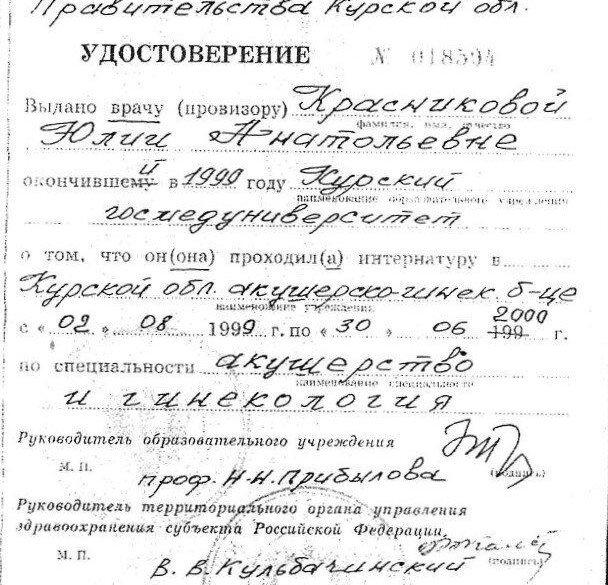 Правительства Курской обл.
УДОСТОВЕРЕНИЕ № 018594
Выдано врачу (провизору) Красниковой
фамилия, имя, отчество
Юлии Анатольевне
й
окончившему в 1999 году Курский
наименование образовательного учреждения
госмедуниверситет
о том, что он(она) проходил(а) интернатуру в
Курской обл. акушерско-гинек. б-це
наименование учреждения
2000
с «02» 08 1999 г. по «30» 06 199 г.
по специальности акушерство
наименование специальности
и гинекология
Руководитель образовательного учреждения
М. П. (подпись)
проф. Н.Н. Прибылова
Руководитель территориального органа управления
здравоохранения субъекта Российской Федерации
М. П. (подпись)
В. В. Кульбачинский